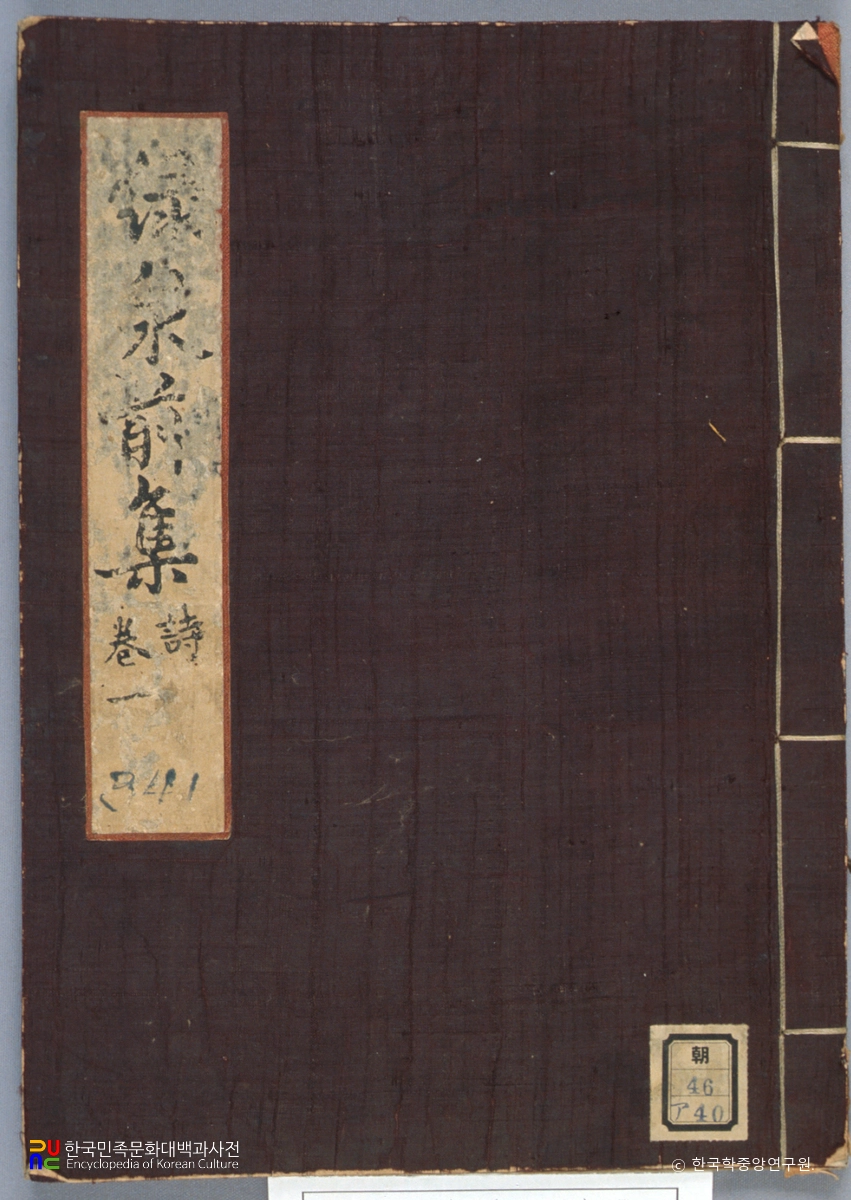 泉前集
詩
卷一
朝
46
ア40
한국민족문화대백과사전
Encyclopedia of Korean Culture
© 한국학중앙연구원.